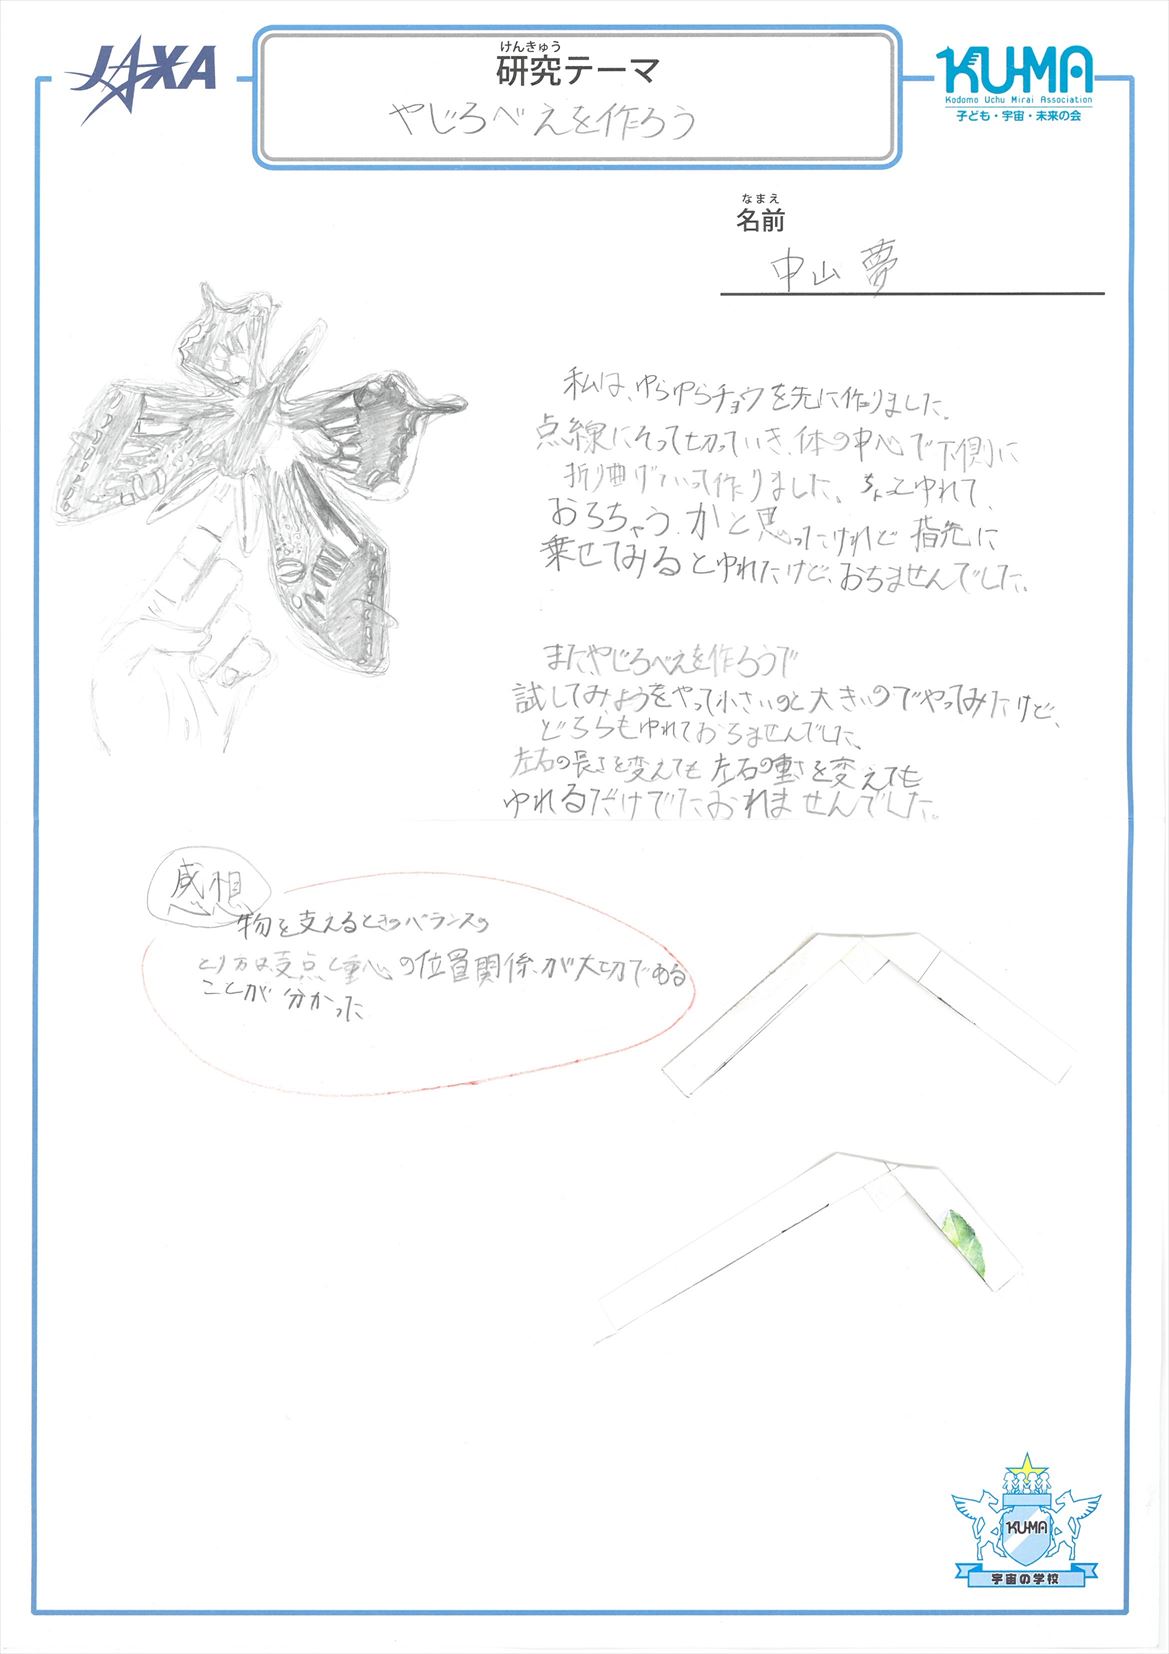 JAXA
けんきゅう
研究テーマ
やじろべえを作ろう
KU-MA
Kodomo Uchu Mirai Association
子ども・宇宙・未来の会
なまえ
名前
中山 夢
私は、ゆらゆらチョウを先に作りました。
点線にそって切っていき、体の中心で下側に
折り曲げていって作りました。ちょっとゆれて、
おちちゃうかと思ったけれど指先に
乗せてみるとゆれたけど、おちませんでした。
またやじろべえを作ろうで
試してみようをやって小さいのと大きいのでやってみたけど、
どちらもゆれておちませんでした。
左右の長さを変えても左右の重さを変えても
ゆれるだけでたおれませんでした。
感想
物を支えるときのバランスの
とり方は支点と重心の位置関係が大切である
ことが分かった
KU-MA
宇宙の学校